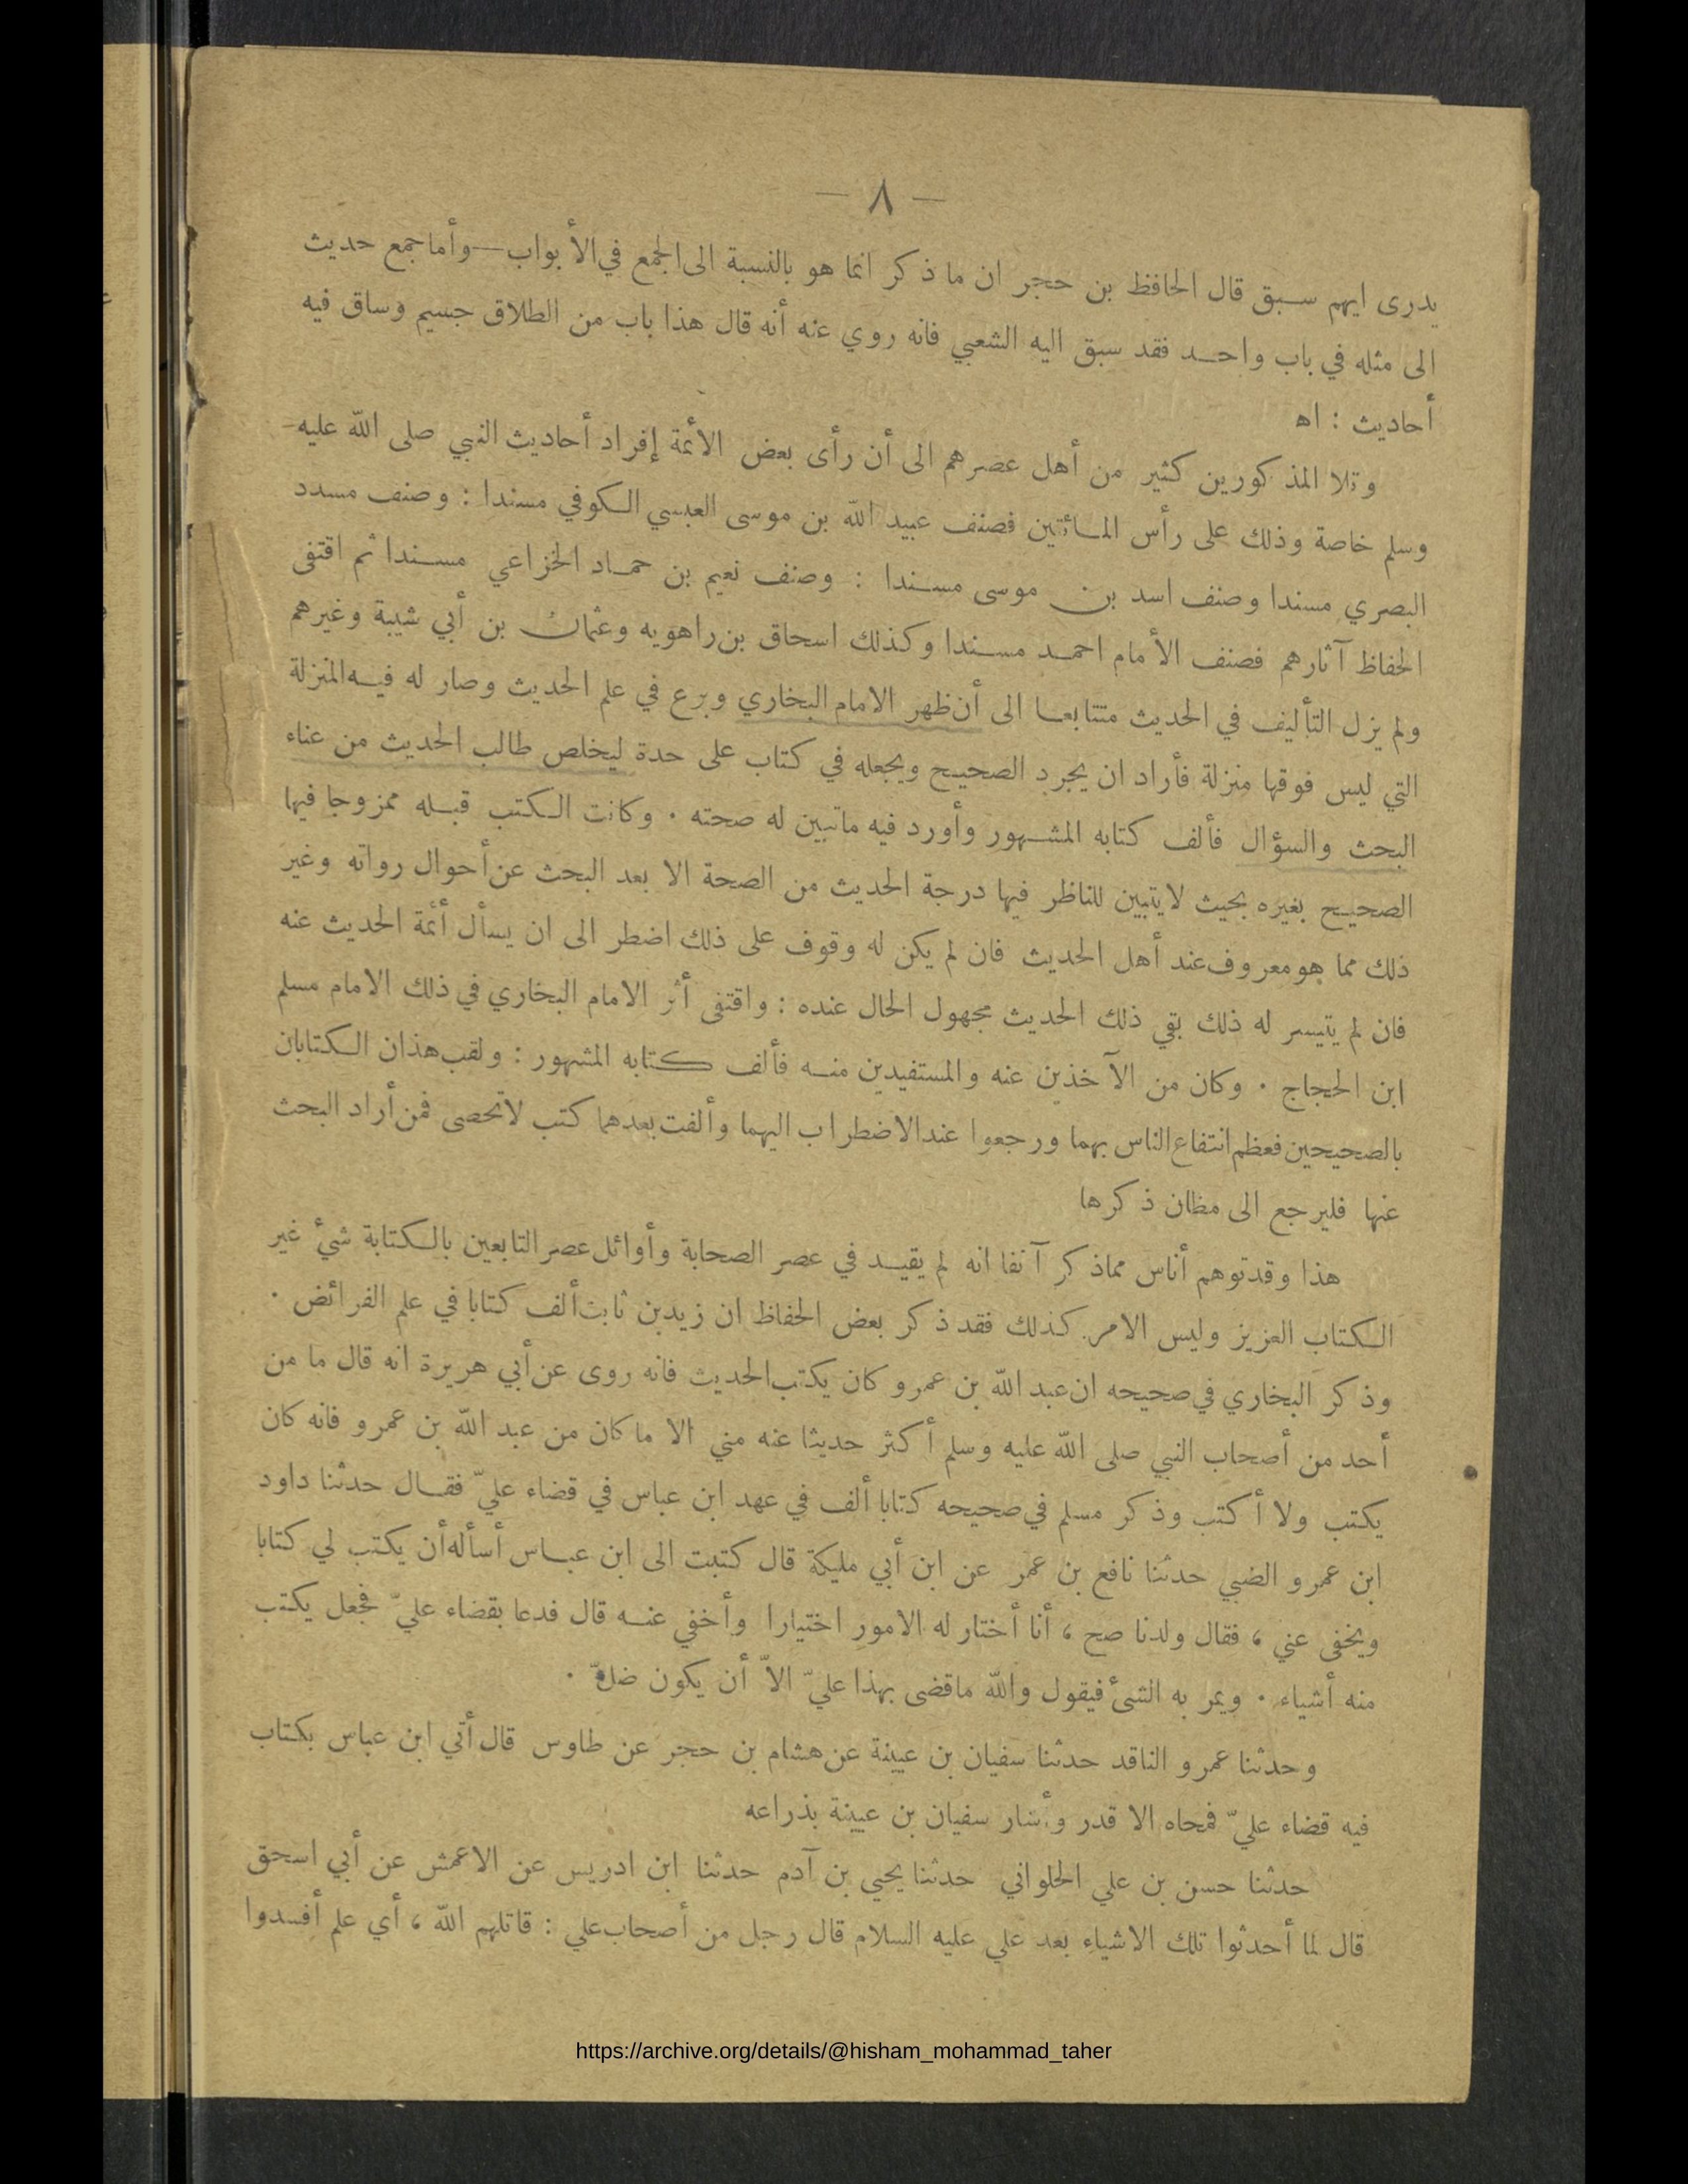 — ٨ —
يدرى ايهم سبق قال الحافظ بن حجر ان ما ذكر انما هو بالنسبة الى الجمع في الأبواب — وأما جمع حديث
الى مثله في باب واحد فقد سبق اليه الشعبي فانه روي عنه أنه قال هذا باب من الطلاق جسيم وساق فيه
أحاديث : اه
وتلا المذكورين كثير من أهل عصرهم الى أن رأى بعض الأئمة إفراد أحاديث النبي صلى الله عليه
وسلم خاصة وذلك على رأس المائتين فصنف عبيد الله بن موسى العبسي الكوفي مسندا : وصنف مسدد
البصري مسندا وصنف اسد بن موسى مسندا : وصنف نعيم بن حماد الخزاعي مسندا ثم اقتفى
الحفاظ آثارهم فصنف الأمام احمد مسندا وكذلك اسحاق بن راهويه وعثمان بن أبي شيبة وغيرهم
ولم يزل التأليف في الحديث متتابعا الى أن ظهر الامام البخاري وبرع في علم الحديث وصار له فيه المنزلة
التي ليس فوقها منزلة فأراد ان يجرد الصحيح ويجعله في كتاب على حدة ليخلص طالب الحديث من عناء
البحث والسؤال فألف كتابه المشهور وأورد فيه ماتبين له صحته . وكانت الكتب قبله ممزوجا فيها
الصحيح بغيره بحيث لايتبين للناظر فيها درجة الحديث من الصحة الا بعد البحث عن أحوال رواته وغير
ذلك مما هو معروف عند أهل الحديث فان لم يكن له وقوف على ذلك اضطر الى ان يسأل أئمة الحديث عنه
فان لم يتيسر له ذلك بقي ذلك الحديث مجهول الحال عنده : واقتفى أثر الامام البخاري في ذلك الامام مسلم
ابن الحجاج . وكان من الآخذين عنه والمستفيدين منه فألف كتابه المشهور : ولقب هذان الكتابان
بالصحيحين فعظم انتفاع الناس بهما ورجعوا عند الاضطراب اليهما وألفت بعدهما كتب لاتحصى فمن أراد البحث
عنها فليرجع الى مظان ذكرها
هذا وقد توهم أناس مماذكر آنفا انه لم يقيد في عصر الصحابة وأوائل عصر التابعين بالكتابة شيء غير
الكتاب العزيز وليس الامر كذلك فقد ذكر بعض الحفاظ ان زيد بن ثابت ألف كتابا في علم الفرائض .
وذكر البخاري في صحيحه ان عبد الله بن عمرو كان يكتب الحديث فانه روى عن أبي هريرة انه قال ما من
أحد من أصحاب النبي صلى الله عليه وسلم أكثر حديثا عنه مني الا ما كان من عبد الله بن عمرو فانه كان
يكتب ولا أكتب وذكر مسلم في صحيحه كتابا ألف في عهد ابن عباس في قضاء عليّ فقال حدثنا داود
ابن عمرو الضبي حدثنا نافع بن عمر عن ابن أبي مليكة قال كتبت الى ابن عباس أسأله أن يكتب لي كتابا
ويخفى عني ، فقال ولدنا صح ، أنا أختار له الامور اختيارا وأخفي عنه قال فدعا بقضاء عليّ فجعل يكتب
منه أشياء . ويمر به الشئ فيقول والله ماقضى بهذا عليّ الاّ أن يكون ضلّ .
وحدثنا عمرو الناقد حدثنا سفيان بن عيينة عن هشام بن حجر عن طاوس قال أتي ابن عباس بكتاب
فيه قضاء عليّ فمحاه الا قدر وأشار سفيان بن عيينة بذراعه
حدثنا حسن بن علي الحلواني حدثنا يحيى بن آدم حدثنا ابن ادريس عن الاعمش عن أبي اسحق
قال لما أحدثوا تلك الاشياء بعد علي عليه السلام قال رجل من أصحاب علي : قاتلهم الله ، أي علم أفسدوا
https://archive.org/details/@hisham_mohammad_taher